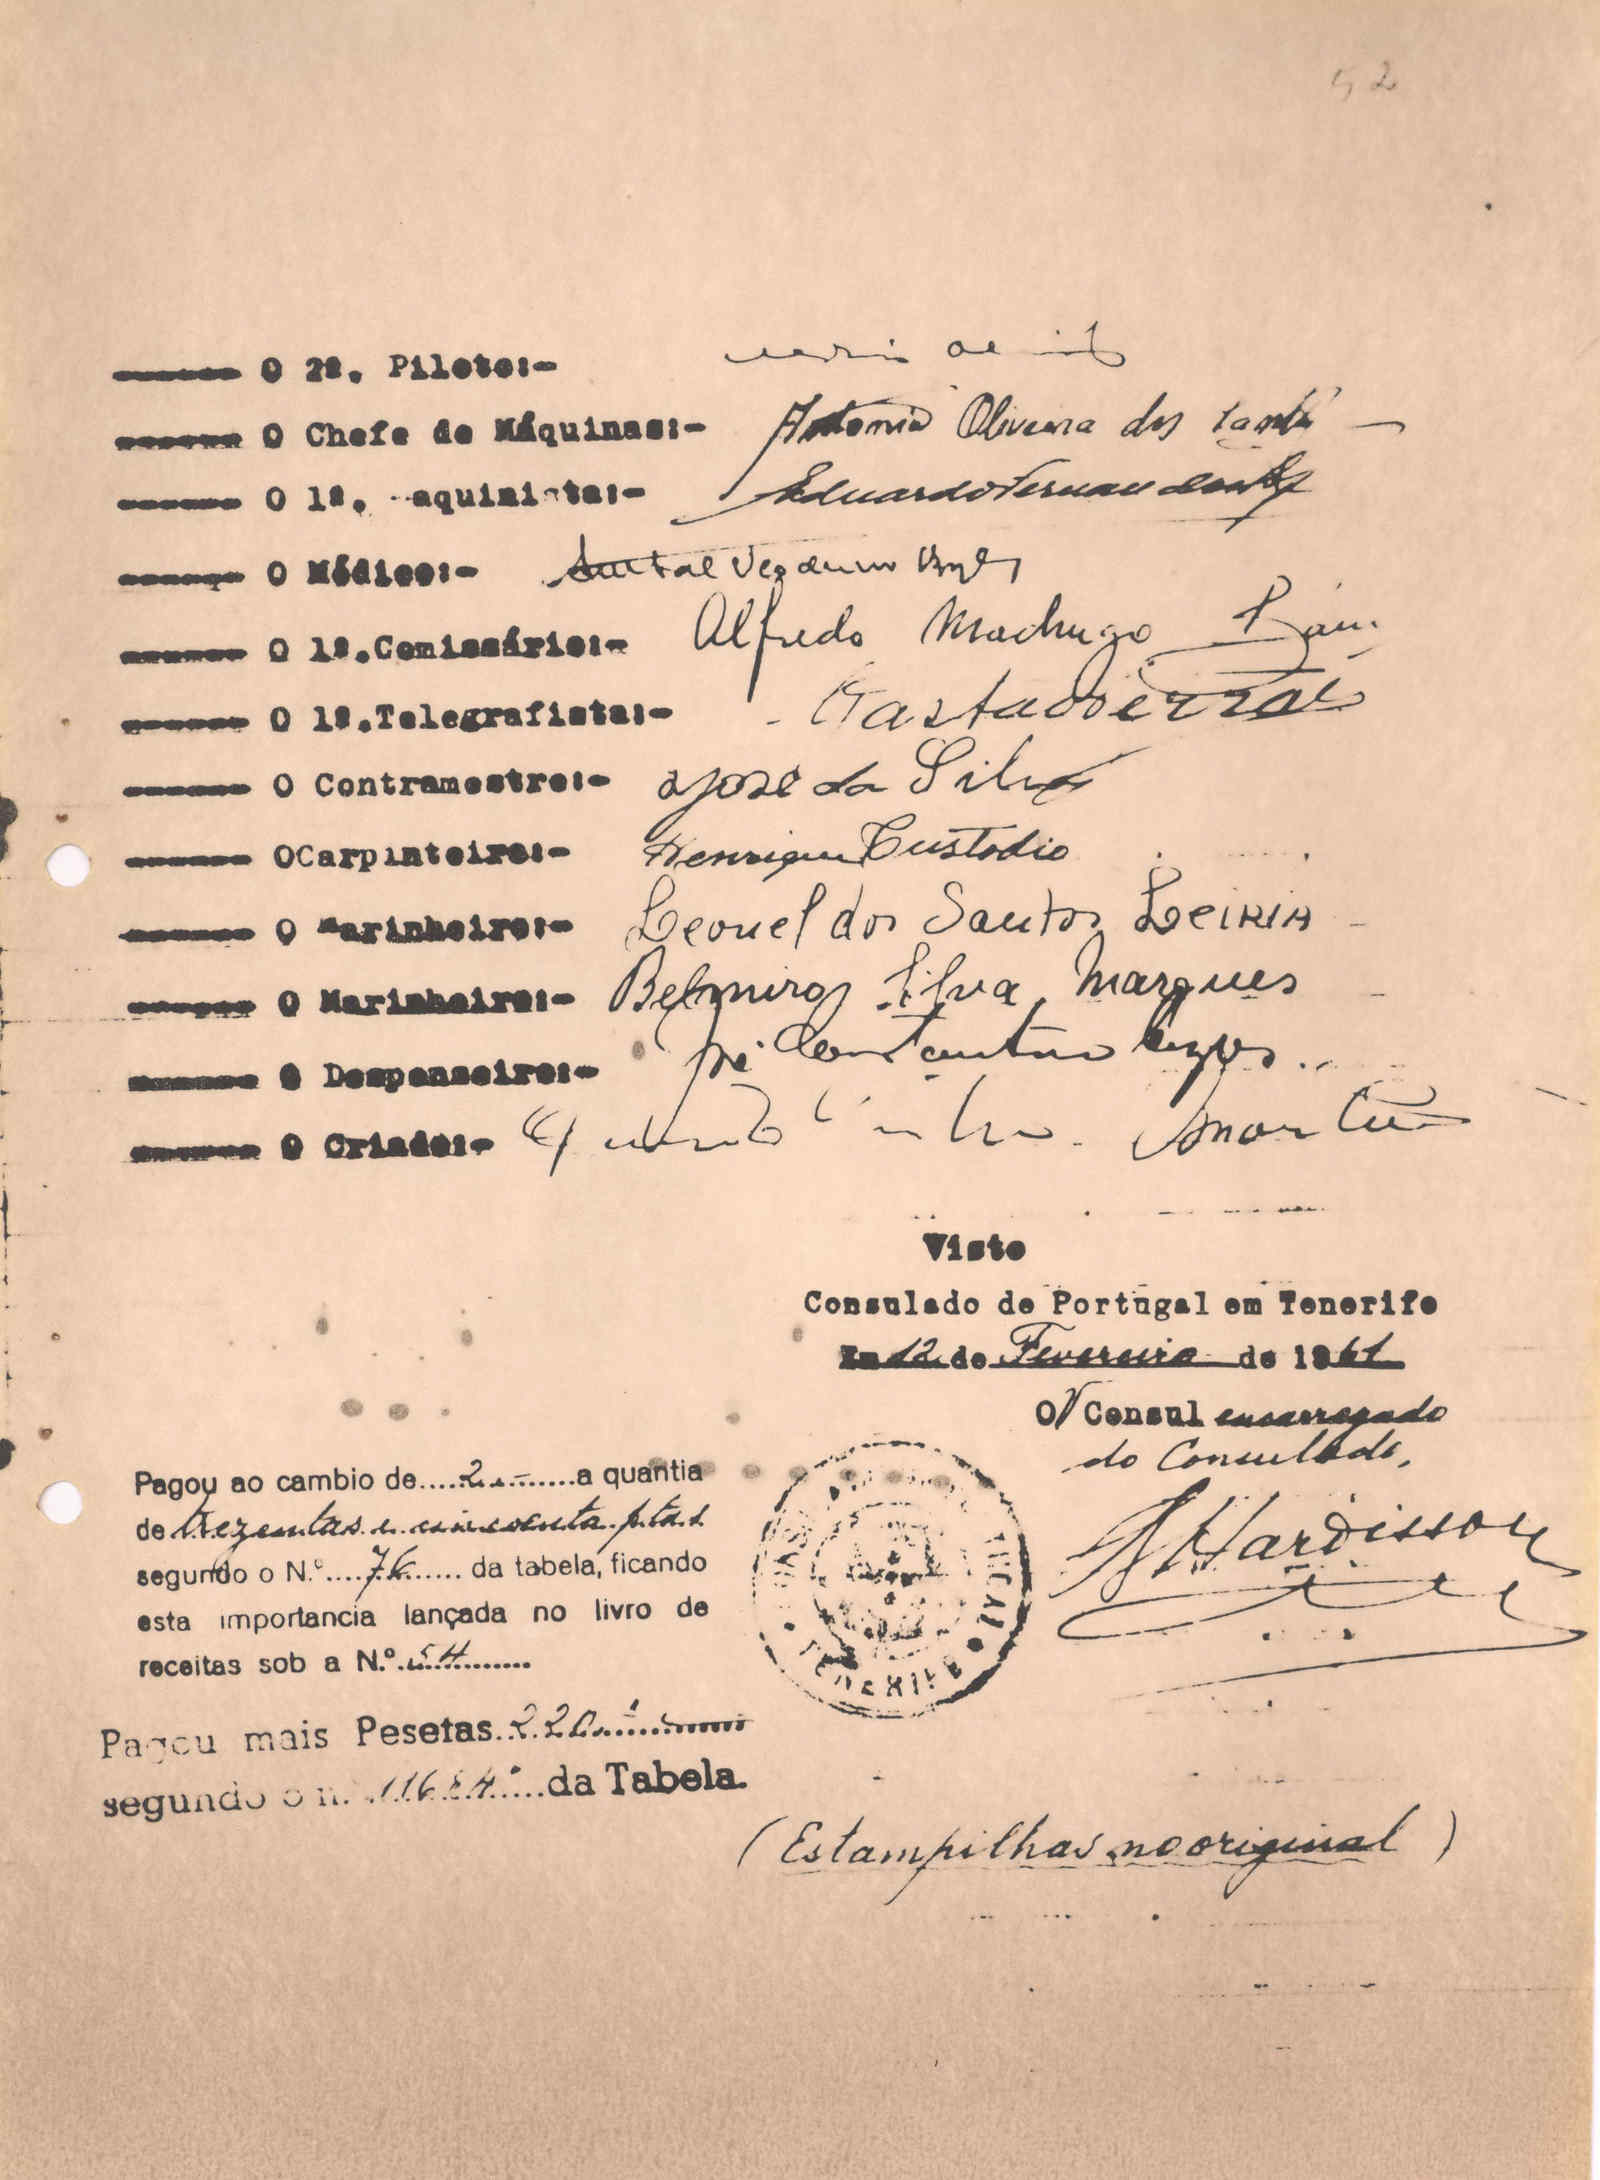 52
O 2º. Piloto:-
O Chefe de Máquinas:- Antonio Oliveira dos Santos
O 1º. aquinista:- Eduardo Fernandes
O Médico:-
O 1º.Comissário:- Alfredo Madrugo
O 1º.Telegrafista:-
O Contramestre:- José da Silva
OCarpinteiro:- Henrique Custodio
O Marinheiro:- Leonel dos Santos Leiria
O Marinheiro:- Belmiro Silva Marques
O Despenseiro:- Constantino
O Criado:- Martins
Visto
Consulado de Portugal em Tenerife
Em 12 de Fevereiro de 1961
O V Consul encarregado
do Consulado,
Hardisson
Pagou ao cambio de....2.-........a quantia
de trezentas e cincoenta ptas
segundo o N.º....76...... da tabela, ficando
esta importancia lançada no livro de
receitas sob a N.º.54..........
TENERIFE
Pagou mais Pesetas..220.-............
segundo o n. ........da Tabela.
(Estampilhas no original)